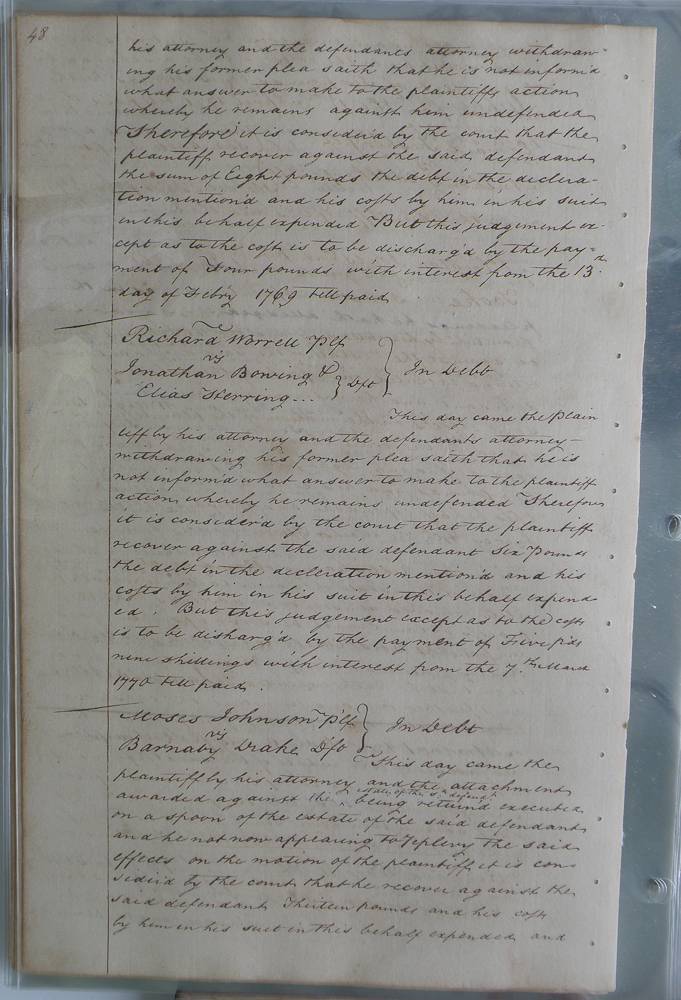 48
his attorney and the defendants attorney withdraw=
ing his former plea saith that he is not inform'd
what answer to make to the plaintiffs action
whereby he remains against him undefended
Therefore it is consider'd by the court that the
plaintiff recover against the said defendant
the sum of Eight pounds the debt in the declera-
tion mention'd and his costs by him in his suit
in this behalf expended But this judgement ex-
cept as to the costs is to be discharg'd by the pay=
ment of Four pounds with interest from the 13th
day of Febry 1769 till paid
Richard Worrell Plf
vs
Jonathan Bowing &
Elias Herring... } Dft } In Debt
This day came the plain
tiff by his attorney and the defendants attorney-
withdrawing his former plea saith that he is
not inform'd what answer to make to the plaintiff
action whereby he remains undefended Therefore
it is consider'd by the court that the plaintiff
recover against the said defendant Six Pounds
the debt in the decleration mention'd and his
costs by him in his suit in this behalf expend
ed. But this judgement except as to the costs
is to be disharg'd by the payment of Five pds
nine shillings with interest from the 7th March
1770 till paid.
Moses Johnson Plf } In Debt
vs
Barnaby Drake Dft
This day came the
plaintiff by his attorney and the attachment
estate of the sd defendt
awarded against the ^ being returnd executed
on a spoon of the estate of the said defendant
and he not now appearing to replevy the said
effects on the motion of the plaintiff it is con=
sider'd by the court that he recover against the
said defendant Thirteen pounds and his costs
by him in his suit in this behalf expended and